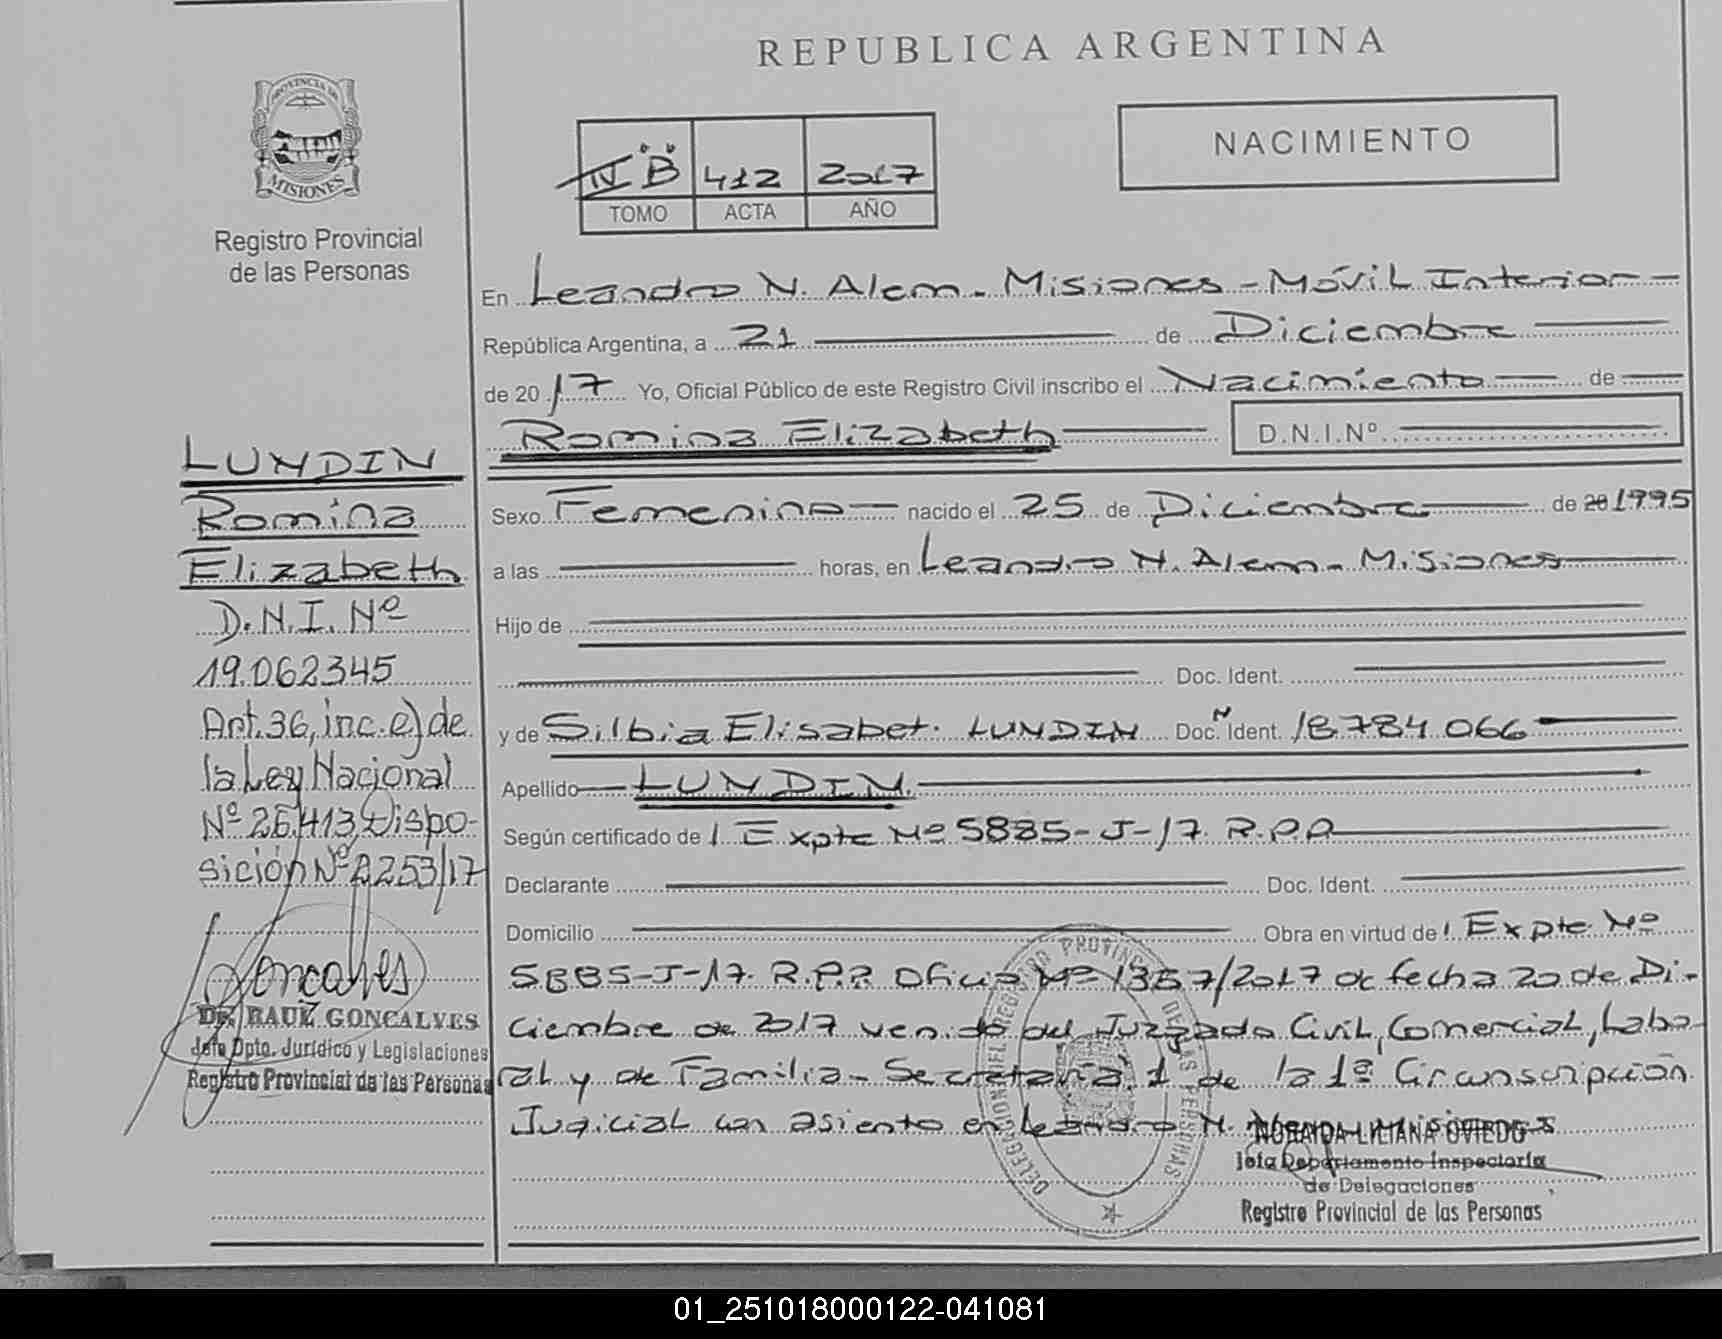 REPUBLICA ARGENTINA
PROVINCIA DE
MISIONES
Registro Provincial
de las Personas
IV "B" 412 2017
TOMO ACTA AÑO
NACIMIENTO
En Leandro N. Alem - Misiones - Móvil Interior -
República Argentina, a 21 de Diciembre
de 2017 Yo, Oficial Público de este Registro Civil inscribo el Nacimiento de
Romina Elizabeth D.N.I.Nº
Sexo Femenino nacido el 25 de Diciembre de 20 1995
a las horas, en Leandro N. Alem - Misiones
Hijo de
Doc. Ident.
y de Silbia Elisabet. LUNDIN Doc. N Ident. 18.784.066
Apellido LUNDIN.
Según certificado de 1. Expte Nº 5885-J-17. R.P.P.
Declarante Doc. Ident.
Domicilio Obra en virtud de 1. Expte. Nº
5885-J-17. R.P.P. Oficio Nº 1357/2017 de fecha 20 de Di-
ciembre de 2017 venido del Juzgado Civil, Comercial, Labo-
ral y de Familia - Secretaría 1 de la 1ª Circunscripción
Judicial con asiento en Leandro N.
LUNDIN
Romina
Elizabeth
D.N.I. Nº
19.062345
Art. 36, inc. e) de
la Ley Nacional
Nº 26.413, Dispo-
sición Nº 2253/17
Goncalves
DR. RAUL GONCALVES
Jefe Dpto. Jurídico y Legislaciones
Registro Provincial de las Personas
DELEGACION DEL REGISTRO PROVINCIAL DE LAS PERSONAS
NORAYDA LILIANA OVIEDO
Jefa Departamento Inspectoría
de Delegaciones
Registro Provincial de las Personas
01_251018000122-041081